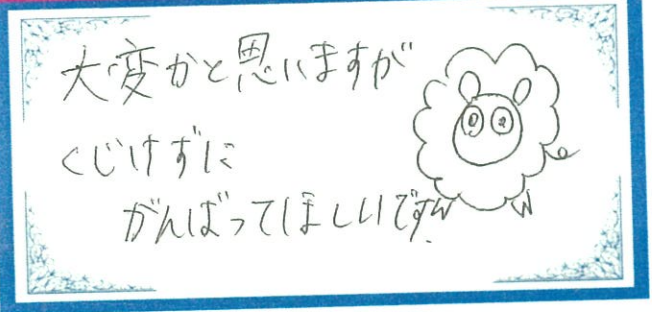 大変かと思いますが
くじけずに
がんばってほしいです.